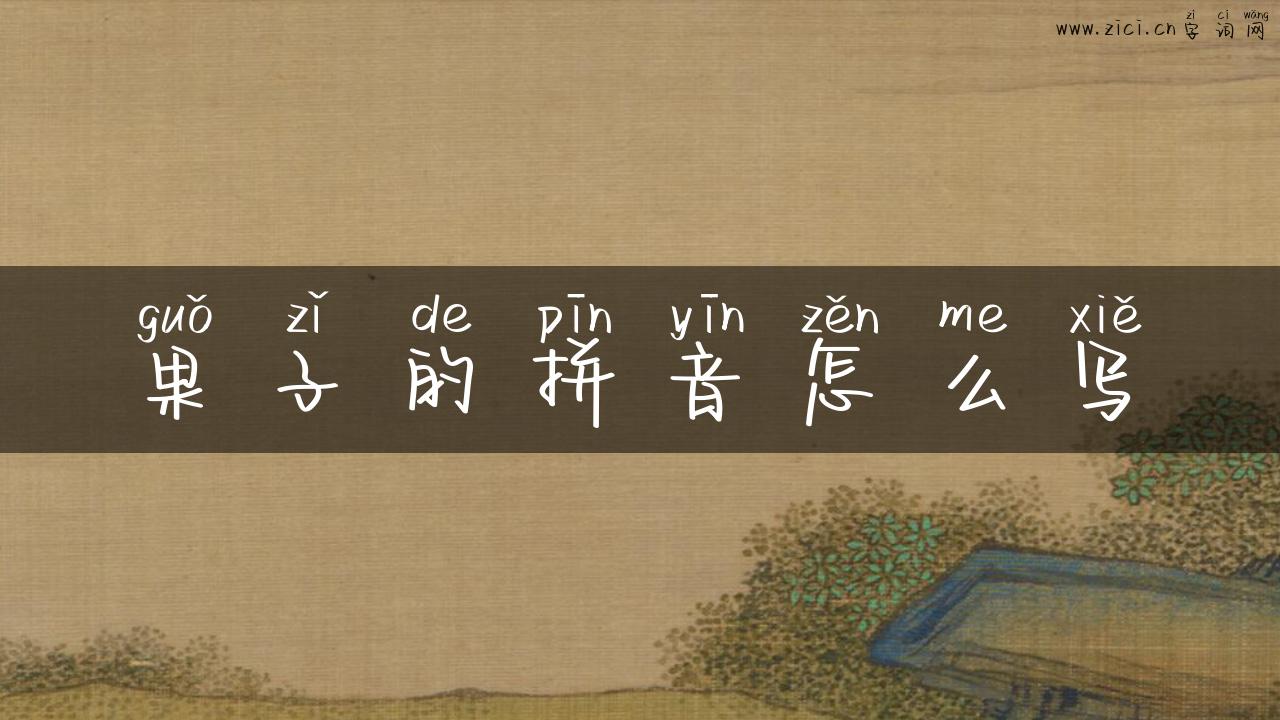 zì cí wǎng
www.zici.cn 字词网
guǒ zǐ de pīn yīn zěn me xiě
果子的拼音怎么写